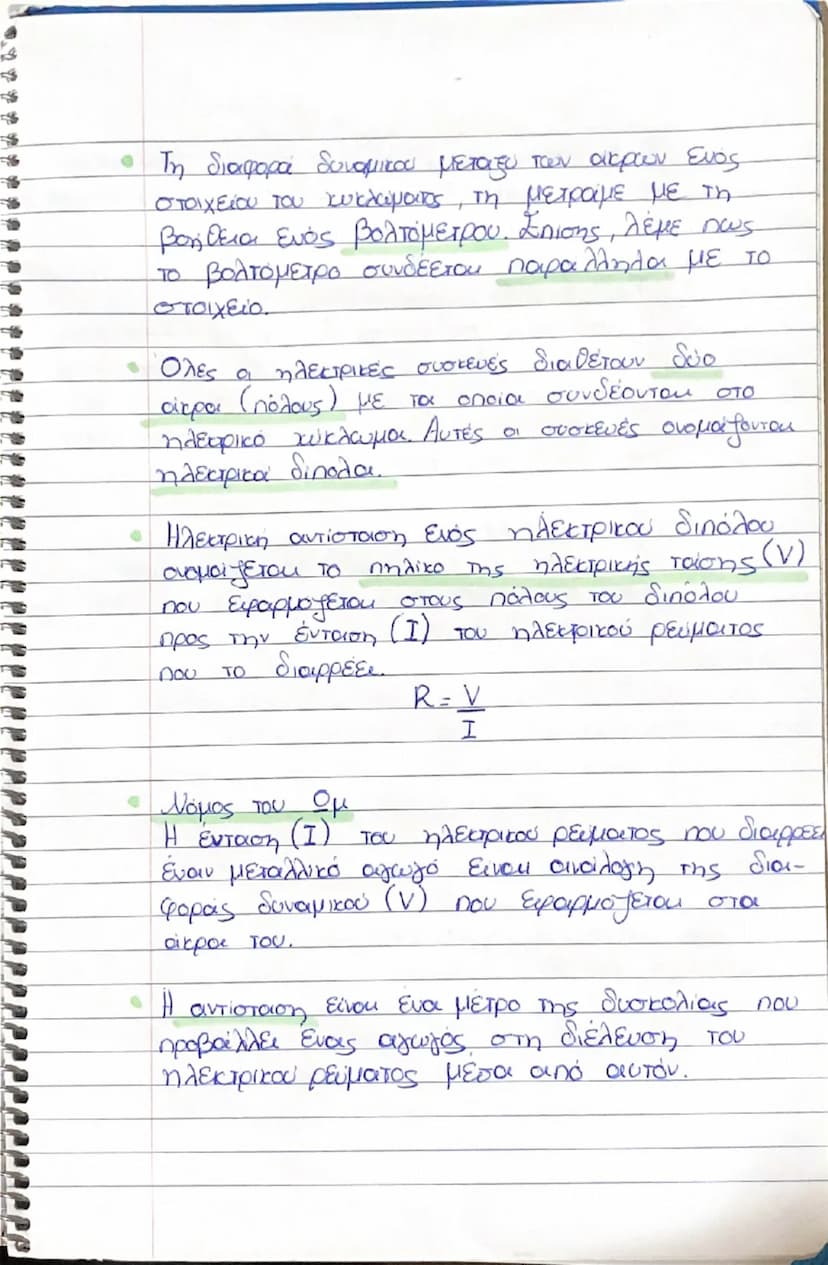 • Τη διαφορά δυναμικού μεταξύ των άκρων ενός
στοιχείου του κυκλώματος, τη μετράμε με τη
βοήθεια ενός βολτόμετρου. Επίσης, λέμε πως
το βολτόμετρο συνδέεται παράλληλα με το
στοιχείο.
• Όλες οι ηλεκτρικές συσκευές διαθέτουν δύο
άκρα (πόλους) με τα οποία συνδέονται στο
ηλεκτρικό κύκλωμα. Αυτές οι συσκευές ονομάζονται
ηλεκτρικά δίπολα.
• Ηλεκτρική αντίσταση ενός ηλεκτρικού διπόλου
ονομάζεται το πηλίκο της ηλεκτρικής τάσης (V)
που εφαρμόζεται στους πόλους του διπόλου
προς την ένταση (I) του ηλεκτρικού ρεύματος
που το διαρρέει.
R = V
I
• Νόμος του Ωμ
Η ένταση (I) του ηλεκτρικού ρεύματος που διαρρέει
έναν μεταλλικό αγωγό είναι ανάλογη της δια-
φοράς δυναμικού (V) που εφαρμόζεται στα
άκρα του.
• Η αντίσταση είναι ένα μέτρο της δυσκολίας που
προβάλλει ένας αγωγός στη διέλευση του
ηλεκτρικού ρεύματος μέσα από αυτόν.